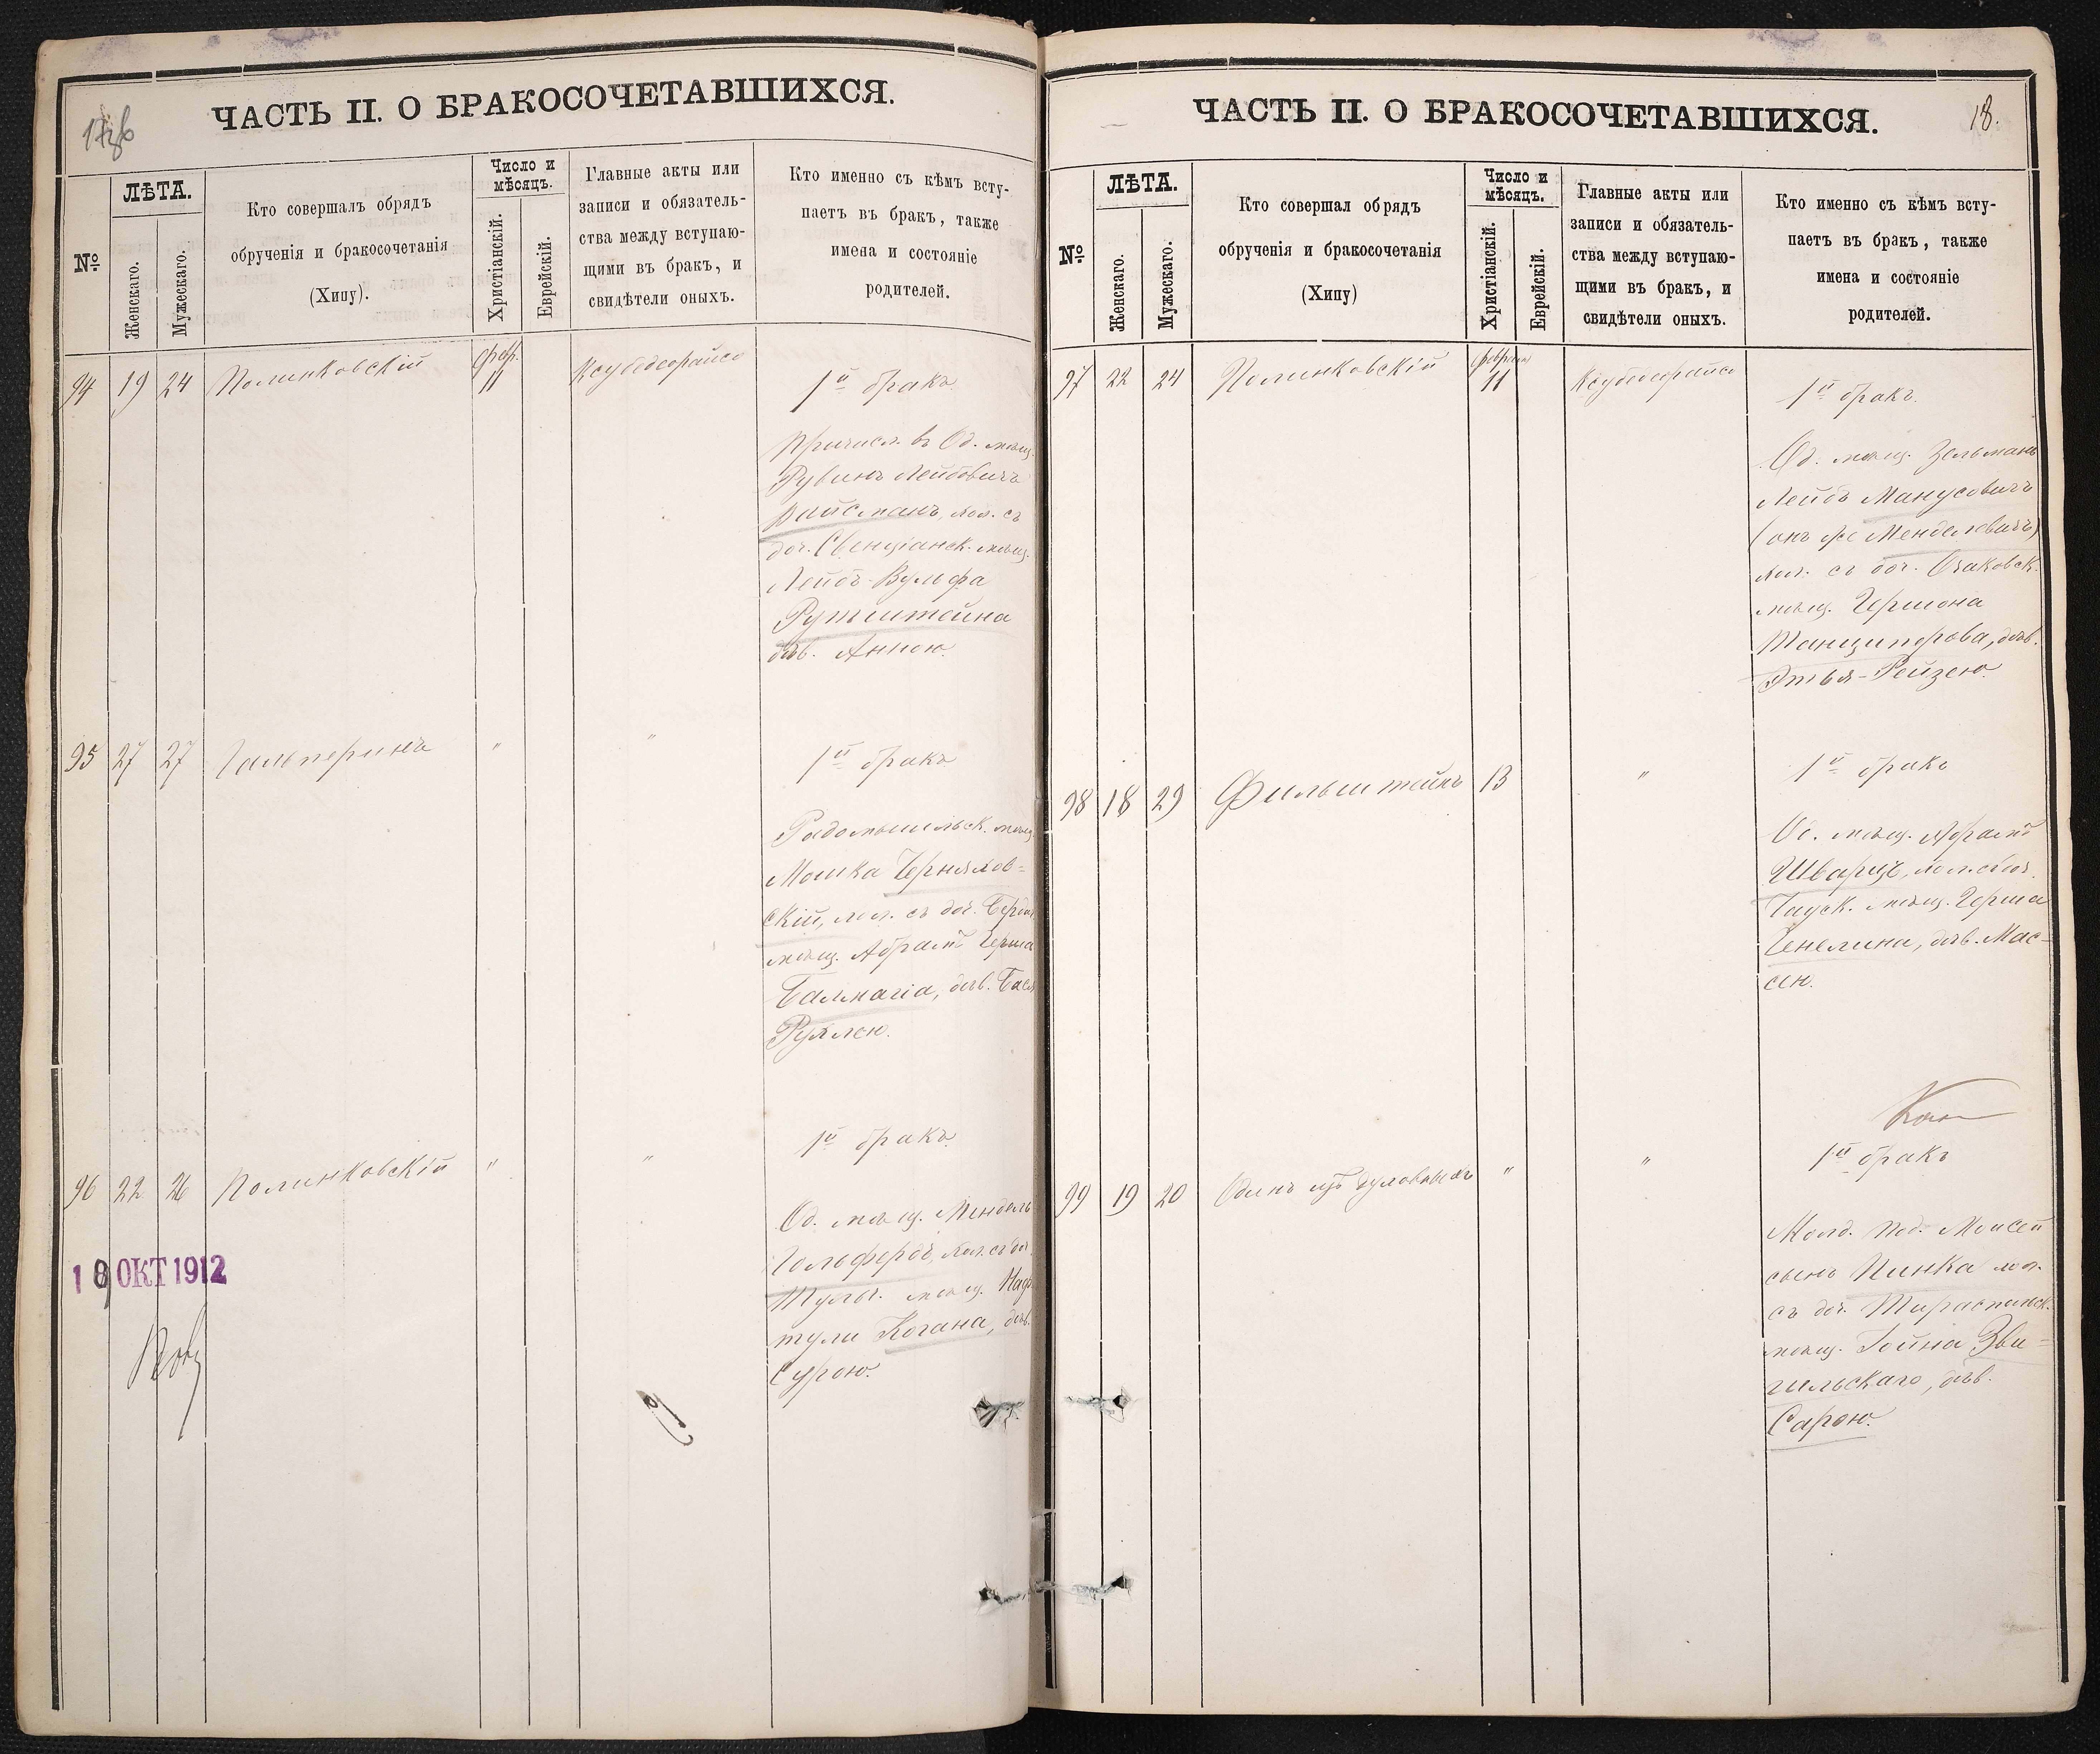 17об
ЧАСТЬ II. О БРАКОСОЧЕТАВШИХСЯ.
№
ЛѢТА.
Женскаго.
Мужескаго.
Кто совершалъ обрядъ
обрученія и бракосочетанія
(Хипу).
Число и
мѣсяцъ.
Христіанскій.
Еврейскій.
Главные акты или
записи и обязатель-
ства между вступаю-
щими въ бракъ, и
свидѣтели оныхъ.
Кто именно съ кѣмъ всту-
паетъ въ бракъ, также
имена и состояніе
родителей.
94 19 24 Полинковскій февр. 11
1й бракъ
Причисл. въ Од. мѣщ.
Рувинъ Лейбовичъ
Вайсманъ, хол. съ
доч. Свенціанск. мѣщ.
Лейбъ-Вульфа
Рутштейна
дѣв. Анною.
95 27 27 Гальперинъ " "
1й бракъ
Радомысльск. мѣщ.
Мошка Черняхов-
скій, хол. съ доч. Бердич.
мѣщ. Абрамъ Герша
Балмагія, дѣв. Бася
Рухлею.
96 22 26 Полинковскій " "
1й бракъ
Од. мѣщ. Мендель
Гольфербъ, хол. съ доч.
Тульч. мѣщ. Наф-
тули Когана, дѣв.
Сурою.
18 ОКТ 1912
ЧАСТЬ II. О БРАКОСОЧЕТАВШИХСЯ.
18.
№
ЛѢТА.
Женскаго.
Мужескаго.
Кто совершал обрядъ
обрученія и бракосочетанія
(Хипу)
Число и
мѣсяцъ.
Христіанскій.
Еврейскій.
Главные акты или
записи и обязатель-
ства между вступаю-
щими въ бракъ, и
свидѣтели оныхъ.
Кто именно съ кѣмъ всту-
паетъ въ бракъ, также
имена и состояніе
родителей.
97 22 24 Полинковскій февраля 11
1й бракъ.
Од. мѣщ. Зельманъ
Лейбъ Манусовичъ
(онъ же Менделевичъ)
хол. съ доч. Очаковск.
мѣщ. Гершона
Танциперова, дѣв.
Этья-Рейзею.
98 18 29 Фильштейнъ 13 "
1й бракъ
Од. мѣщ. Абрамъ
Шварцъ, хол. съ доч.
мѣщ. Герша
Генелина, дѣв. Мас-
сею.
1й бракъ
99 19 20 Одинъ изъ духовныхъ " "
Молд. под. Моисей
сынъ Пинка хол.
съ доч. Тираспольск.
мѣщ. Гойна Зви-
гильскаго, дѣв.
Сарою.